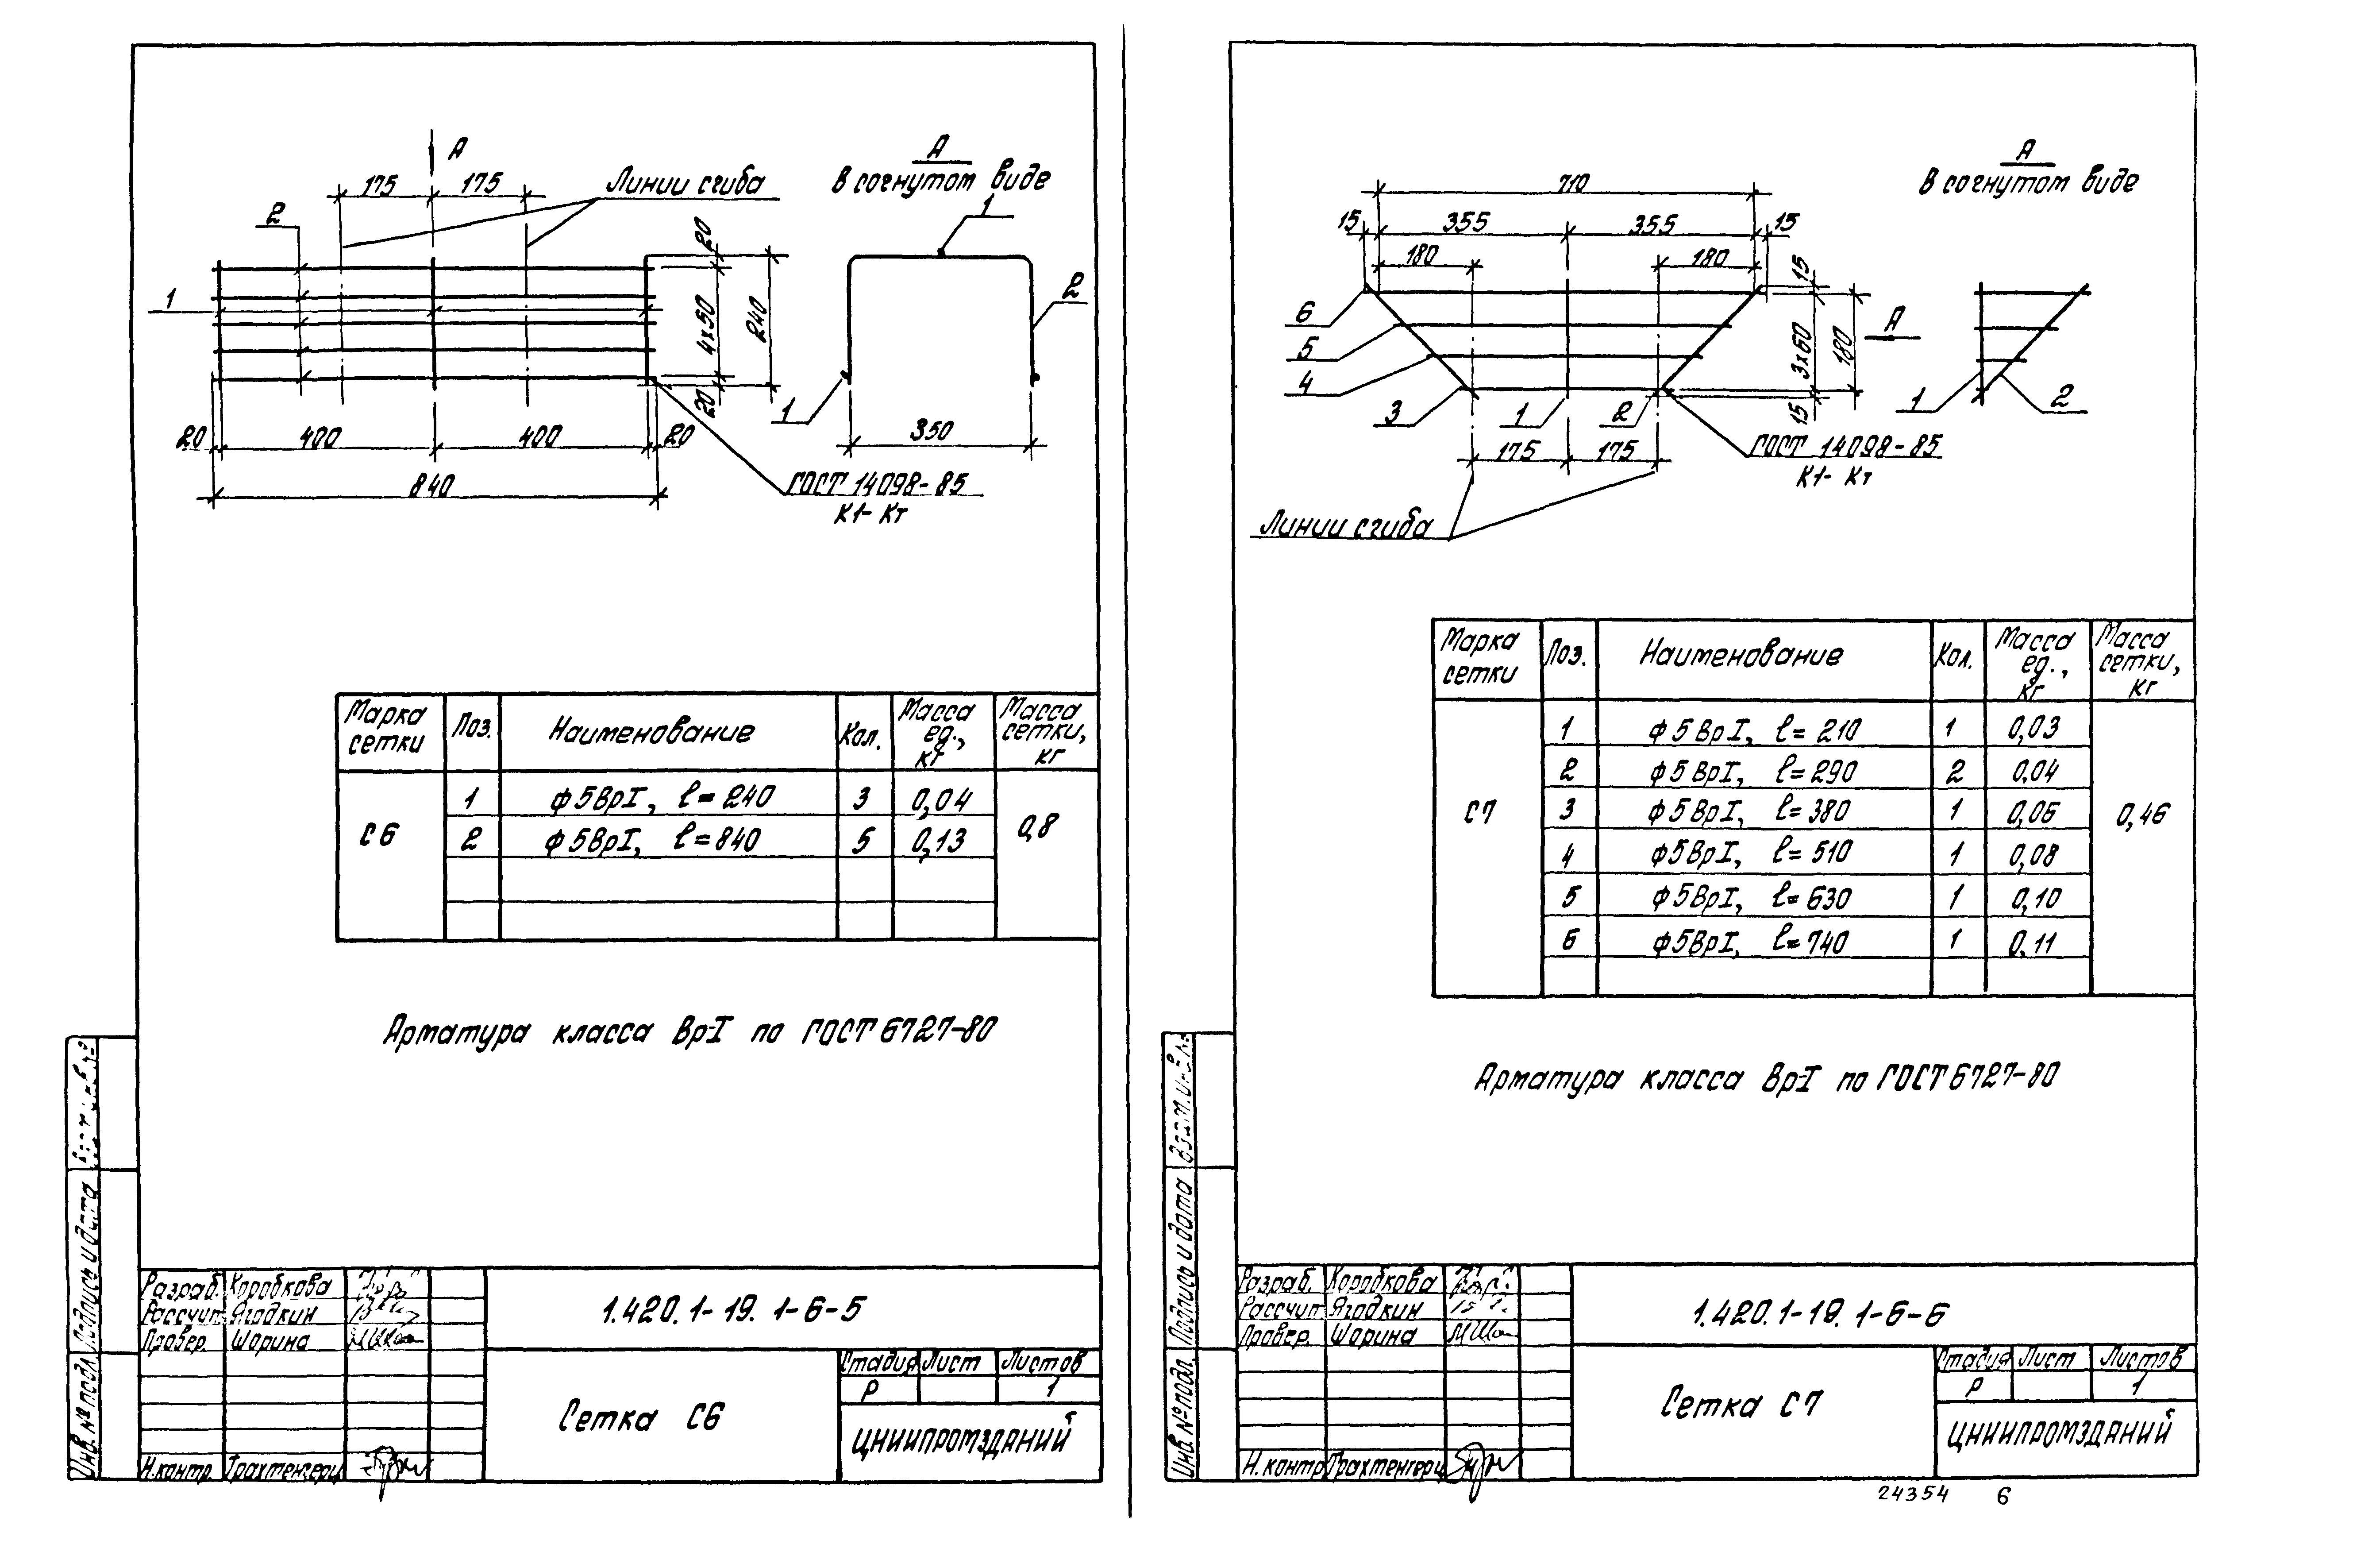 А
175 175
Линии сгиба
А
В согнутом виде
2
1
1
2
20
4х50
20
240
1
20 400 400 20
840
350
ГОСТ 14098-85
К1-Кт
Марка сетки Поз. Наименование Кол. Масса ед., кг Масса сетки, кг
С6
1 ф5ВрI, ℓ=240 3 0,04
2 ф5ВрI, ℓ=840 5 0,13
0,8
Арматура класса Вр-I по ГОСТ 6727-80
Подпись и дата
Инв. № подл.
Разраб. Коробкова
Рассчит. Ягодкин
Провер. Шорина
Н.контр. Трахтенгерц
1.420.1-19. 1-6-5
Сетка С6
Стадия Лист Листов
Р 1
ЦНИИПРОМЗДАНИЙ
А
В согнутом виде
710
15 355 355 15
180 180
15
3х60
15
180
А
6
5
4
3
1
2
1
2
175 175
ГОСТ 14098-85
К1-Кт
Линии сгиба
Марка сетки Поз. Наименование Кол. Масса ед., кг Масса сетки, кг
С7
1 ф5ВрI, ℓ=210 1 0,03
2 ф5ВрI, ℓ=290 2 0,04
3 ф5ВрI, ℓ=380 1 0,06
4 ф5ВрI, ℓ=510 1 0,08
5 ф5ВрI, ℓ=630 1 0,10
6 ф5ВрI, ℓ=740 1 0,11
0,46
Арматура класса Вр-I по ГОСТ 6727-80
Взам. инв. №
Подпись и дата
Инв. № подл.
Разраб. Коробкова
Рассчит. Ягодкин
Провер. Шорина
Н.контр. Трахтенгерц
1.420.1-19. 1-6-6
Сетка С7
Стадия Лист Листов
Р 1
ЦНИИПРОМЗДАНИЙ
24354 6